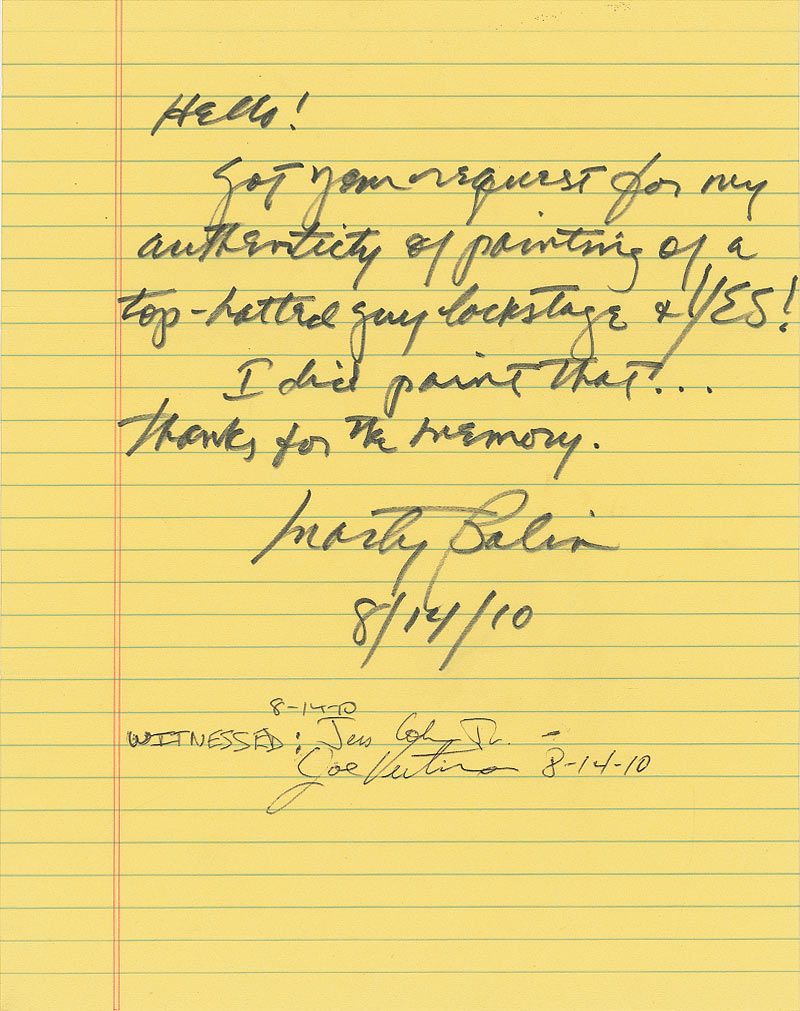 Hello!
Got your request for my
authenticity of painting of a
top-hatted guy backstage & YES!
I did paint that...
thanks for the memory.
Marty Balin
8/14/10
8-14-10
WITNESSED: Jr. -
Joe 8-14-10